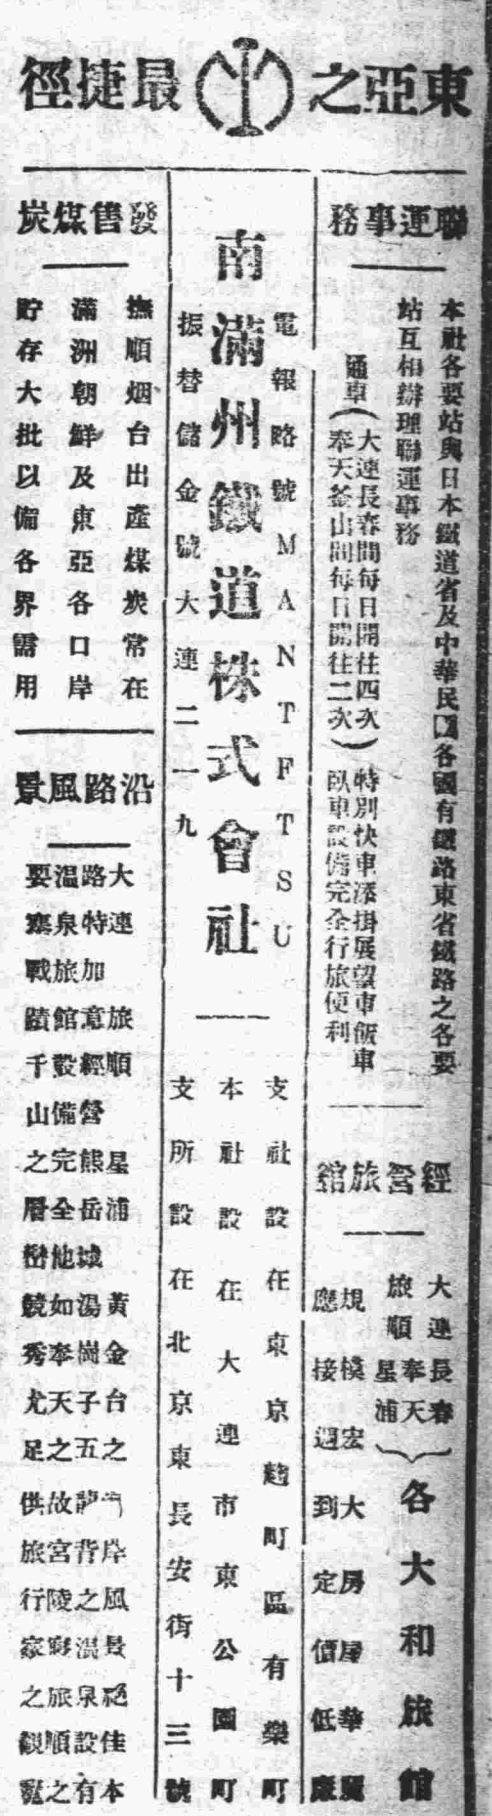 東亞之最捷徑
聯運事務
本社各要站與日本鐵道省及中華民國各國有鐵路東省鐵路之各要
站互相辦理聯運事務
通車（大連長春間每日開往四次
奉天釜山間每日開往二次）
特別快車添掛展望車飯車
臥車設備完全行旅便利
經營旅館
大連長春
旅順奉天
星浦
各大和旅館
規模宏大房屋華麗
應接週到定價低廉
電報略號MANTFTSU
南滿州鐵道株式會社
振替儲金號大連二一九
支社設在東京麴町區有樂町
本社設在大連市東公園町
支所設在北京東長安街十三號
發售煤炭
撫順烟台出產煤炭常在
滿洲朝鮮及東亞各口岸
貯存大批以備各界需用
沿路風景
大連 旅順 星浦 黃金台之海岸風景絕佳本
路特加意經營熊岳城湯崗子五龍背之溫泉設有
溫泉旅館設備完全他如奉天之故宮陵寢旅順之
要塞戰蹟千山之層巒競秀尤足供旅行家之觀覽